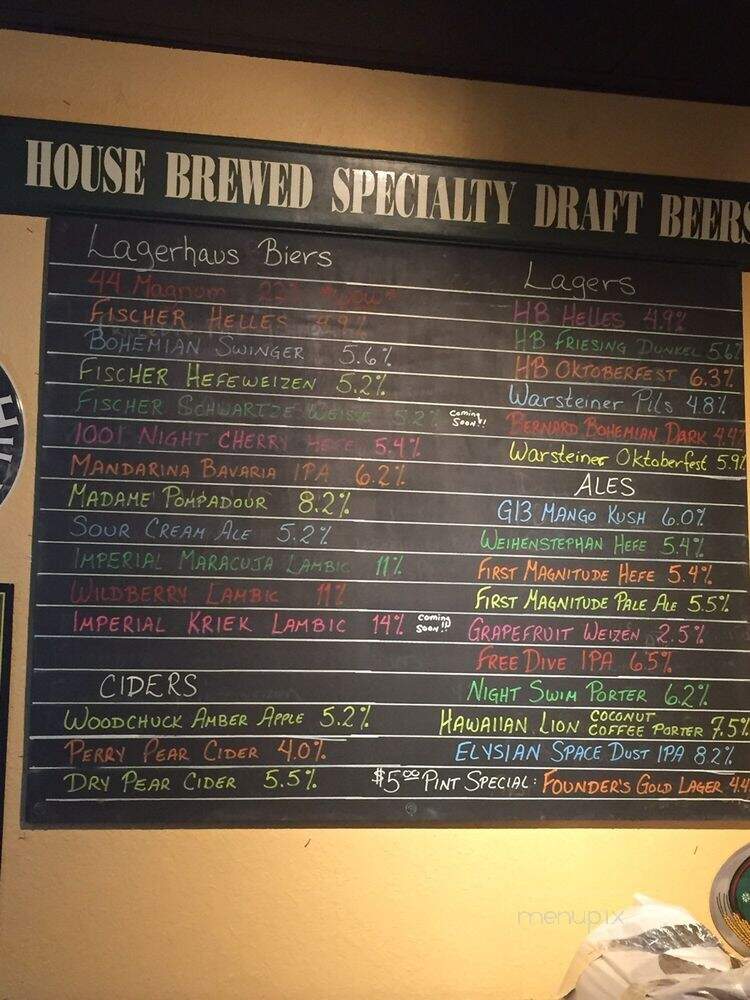 HOUSE BREWED SPECIALTY DRAFT BEERS
Lagerhaus Biers
44 Magnum 22% *wow*
FISCHER HELLES 4.9%
BOHEMIAN SWINGER 5.6%
FISCHER HEFEWEIZEN 5.2%
FISCHER SCHWARTZE WEISSE 5.2% Coming Soon!!
1001 NIGHT CHERRY HEFE 5.4%
MANDARINA BAVARIA IPA 6.2%
MADAME POMPADOUR 8.2%
SOUR CREAM ALE 5.2%
IMPERIAL MARACUJA LAMBIC 11%
WILDBERRY LAMBIC 11%
IMPERIAL KRIEK LAMBIC 14% Coming Soon!!
CIDERS
WOODCHUCK AMBER APPLE 5.2%
PERRY PEAR CIDER 4.0%
DRY PEAR CIDER 5.5%
Lagers
HB HELLES 4.9%
HB FRIESING DUNKEL 5.6%
HB OKTOBERFEST 6.3%
Warsteiner Pils 4.8%
BERNARD BOHEMIAN DARK 4.4%
Warsteiner Oktoberfest 5.9%
ALES
G13 MANGO KUSH 6.0%
WEIHENSTEPHAN HEFE 5.4%
FIRST MAGNITUDE HEFE 5.4%
FIRST MAGNITUDE PALE ALE 5.5%
GRAPEFRUIT WEIZEN 2.5%
FREE DIVE IPA 6.5%
NIGHT SWIM PORTER 6.2%
HAWAIIAN LION COCONUT COFFEE PORTER 7.5%
ELYSIAN SPACE DUST IPA 82%
$5.00 PINT SPECIAL: FOUNDER'S GOLD LAGER 4.4
menupix